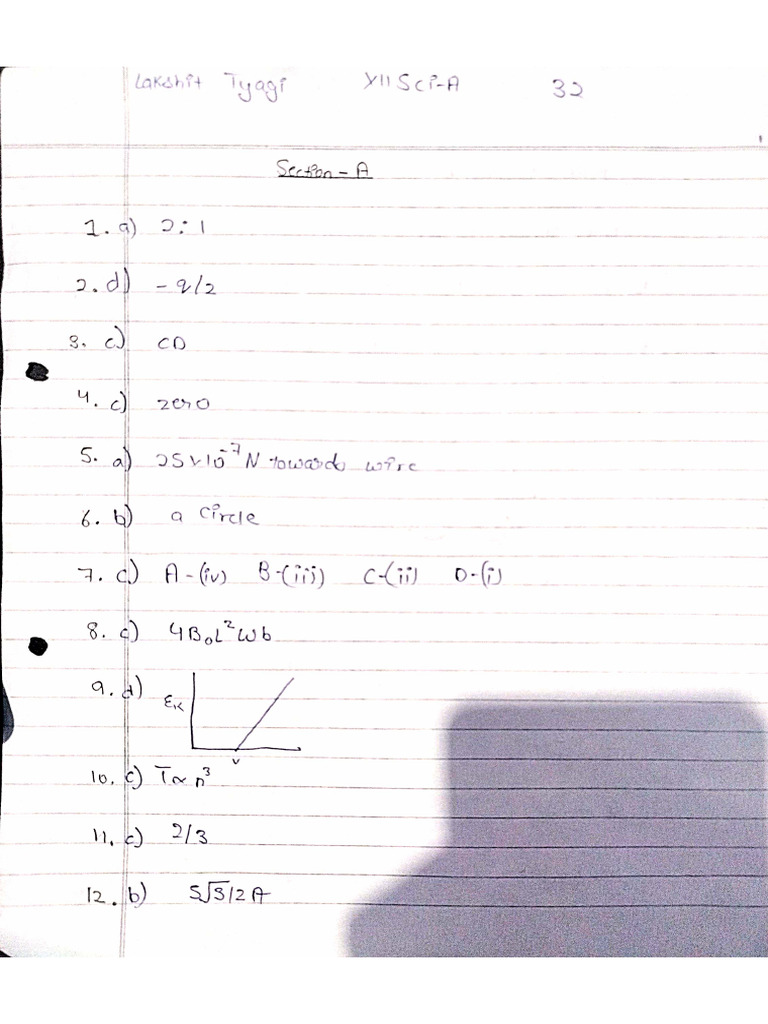 Lakshit Tyagi XII Sci-A 32
1
Section - A
1. a) 2:1
2. d) - q/2
3. c) CD
4. c) zero
5. a) 25×10⁻⁷ N towards wire
6. b) a circle
7. c) A-(iv) B-(iii) C-(ii) D-(i)
8. c) 4B₀L² Wb
9. d) Eₖ
v
10. c) T∝ n³
11. c) 2/3
12. b) 5√3/2 A